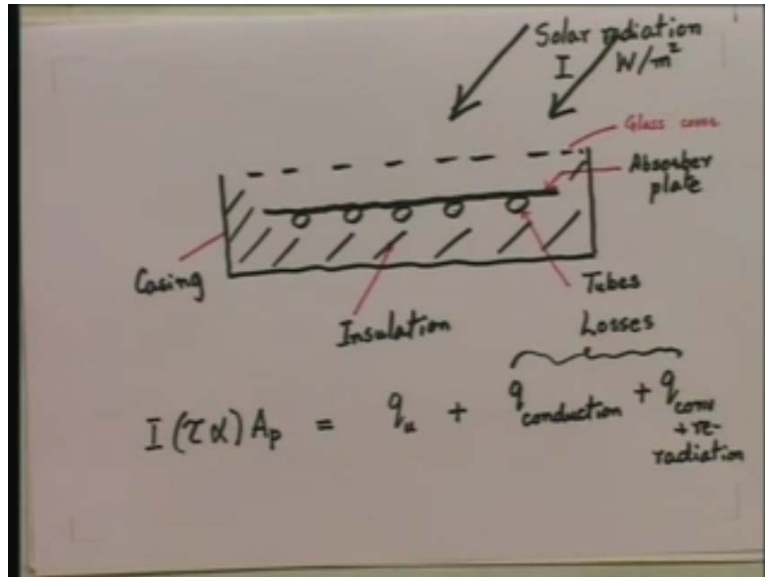 Solar radiation
I W/m²
Glass cover
Absorber
plate
Casing
Tubes
Insulation
Losses
I (τα) Ap = qu + qconduction + qconv
+ re-
radiation